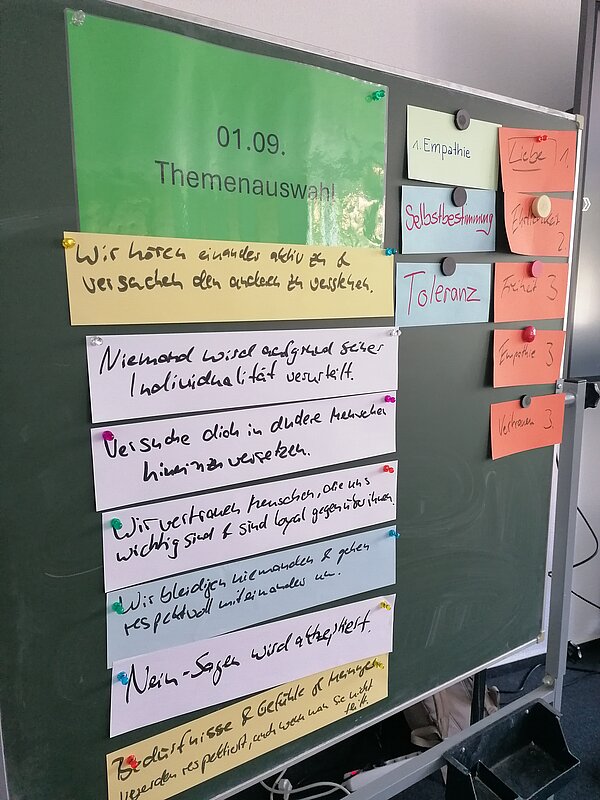 01.09.
Themenauswahl
Wir hören einander aktiv zu &
versuchen den anderen zu verstehen.
Niemand wird aufgrund seiner
Individualität verurteilt.
Versuche dich in andere Menschen
hineinzuversetzen.
Wir vertrauen Menschen, die uns
wichtig sind & sind loyal gegenüber ihnen.
Wir bleidigen niemanden & gehen
respektvoll miteinander um.
Nein-Sagen wird akzeptiert.
Bedürfnisse & Gefühle & Meinungen
werden respektiert, auch wenn man sie nicht
teilt.
1. Empathie
Selbstbestimmung
Toleranz
Liebe 1.
2.
Freiheit 3.
Empathie 3
Vertrauen 3.